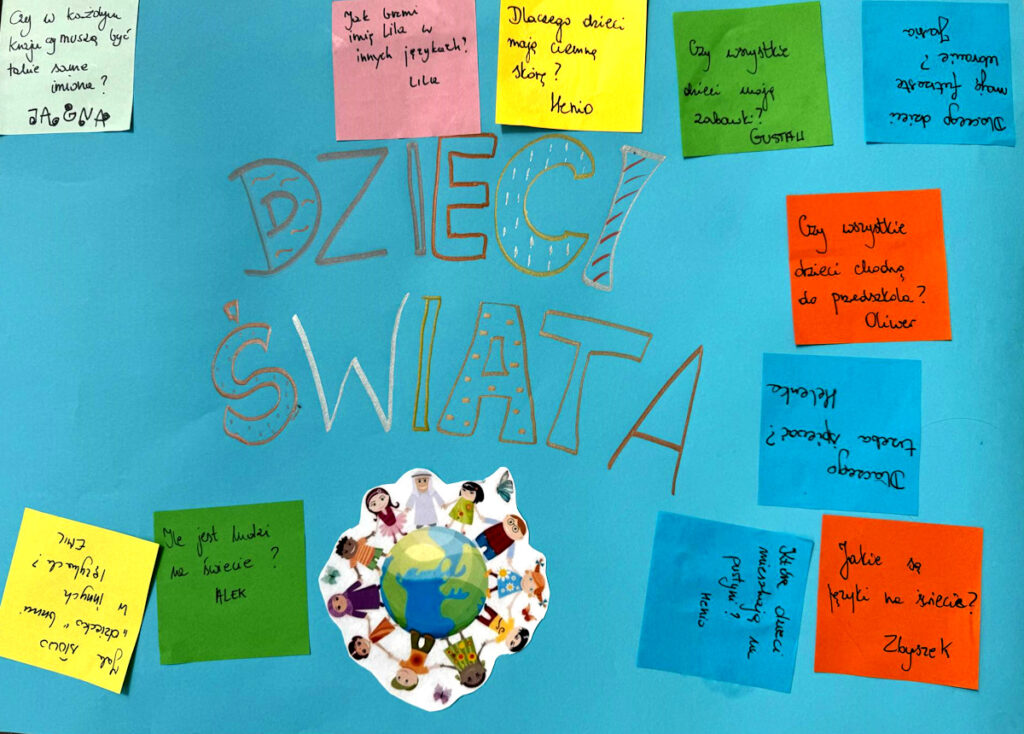 Czy w każdym
kraju muszą być
takie same
imiona?
JAGNA
Jak brzmi
imię Lila w
innych językach?
LILA
Dlaczego dzieci
mają ciemną
skórę?
Henio
Czy wszystkie
dzieci mają
zabawki?
GUSTAW
Dlaczego dzieci
mają
ubranie?
Jasia
DZIECI
ŚWIATA
Czy wszystkie
dzieci chodzą
do przedszkola?
Oliwer
Dlaczego
trzeba śpiewać?
Helenka
Jak słowo
"dziecko" brzmi
w innych
językach?
EMIL
Ile jest ludzi
na świecie?
ALEK
Które dzieci
mieszkają na
pustyni?
Henio
Jakie są
języki na świecie?
Zbyszek